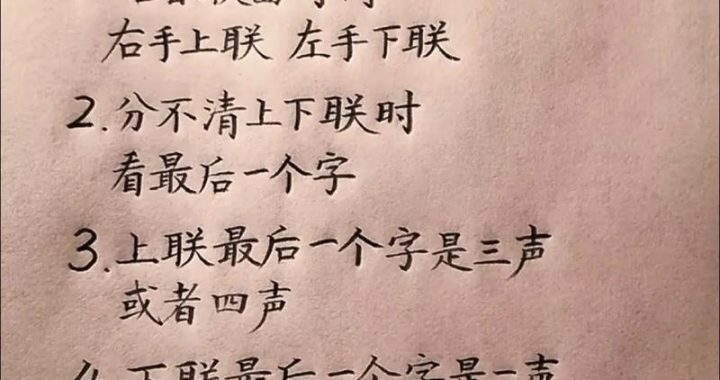 右手上联 左手下联
2.分不清上下联时
看最后一个字
3.上联最后一个字是三声
或者四声
4.下联最后一个字是一声